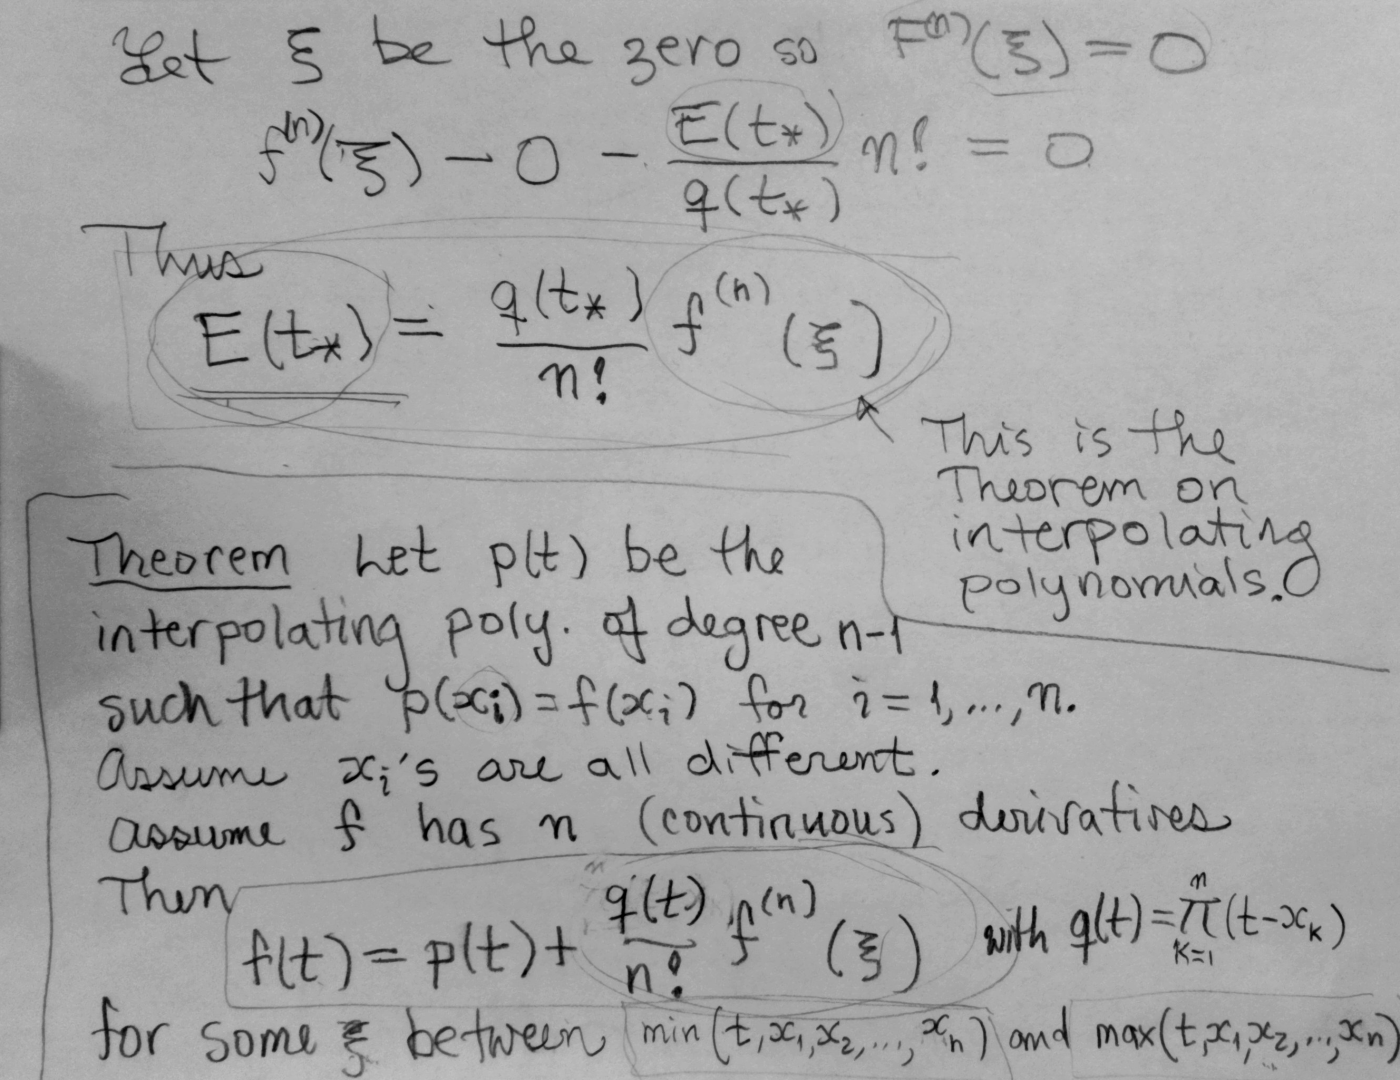 Let ξ be the zero so F⁽ⁿ⁾(ξ) = 0
f⁽ⁿ⁾(ξ) − 0 − E(t*)/q(t*) n! = 0
Thus
E(t*) = q(t*)/n! f⁽ⁿ⁾(ξ)
This is the
Theorem on
interpolating
polynomials.
Theorem Let p(t) be the
interpolating poly. of degree n-1
such that p(xᵢ) = f(xᵢ) for i = 1, ..., n.
Assume xᵢ's are all different.
assume f has n (continuous) derivatives
Then
f(t) = p(t) + q(t)/n! f⁽ⁿ⁾(ξ) with q(t) = ∏ₖ₌₁ⁿ (t-xₖ)
for some ξ between min(t, x₁, x₂, ..., xₙ) and max(t, x₁, x₂, ..., xₙ)